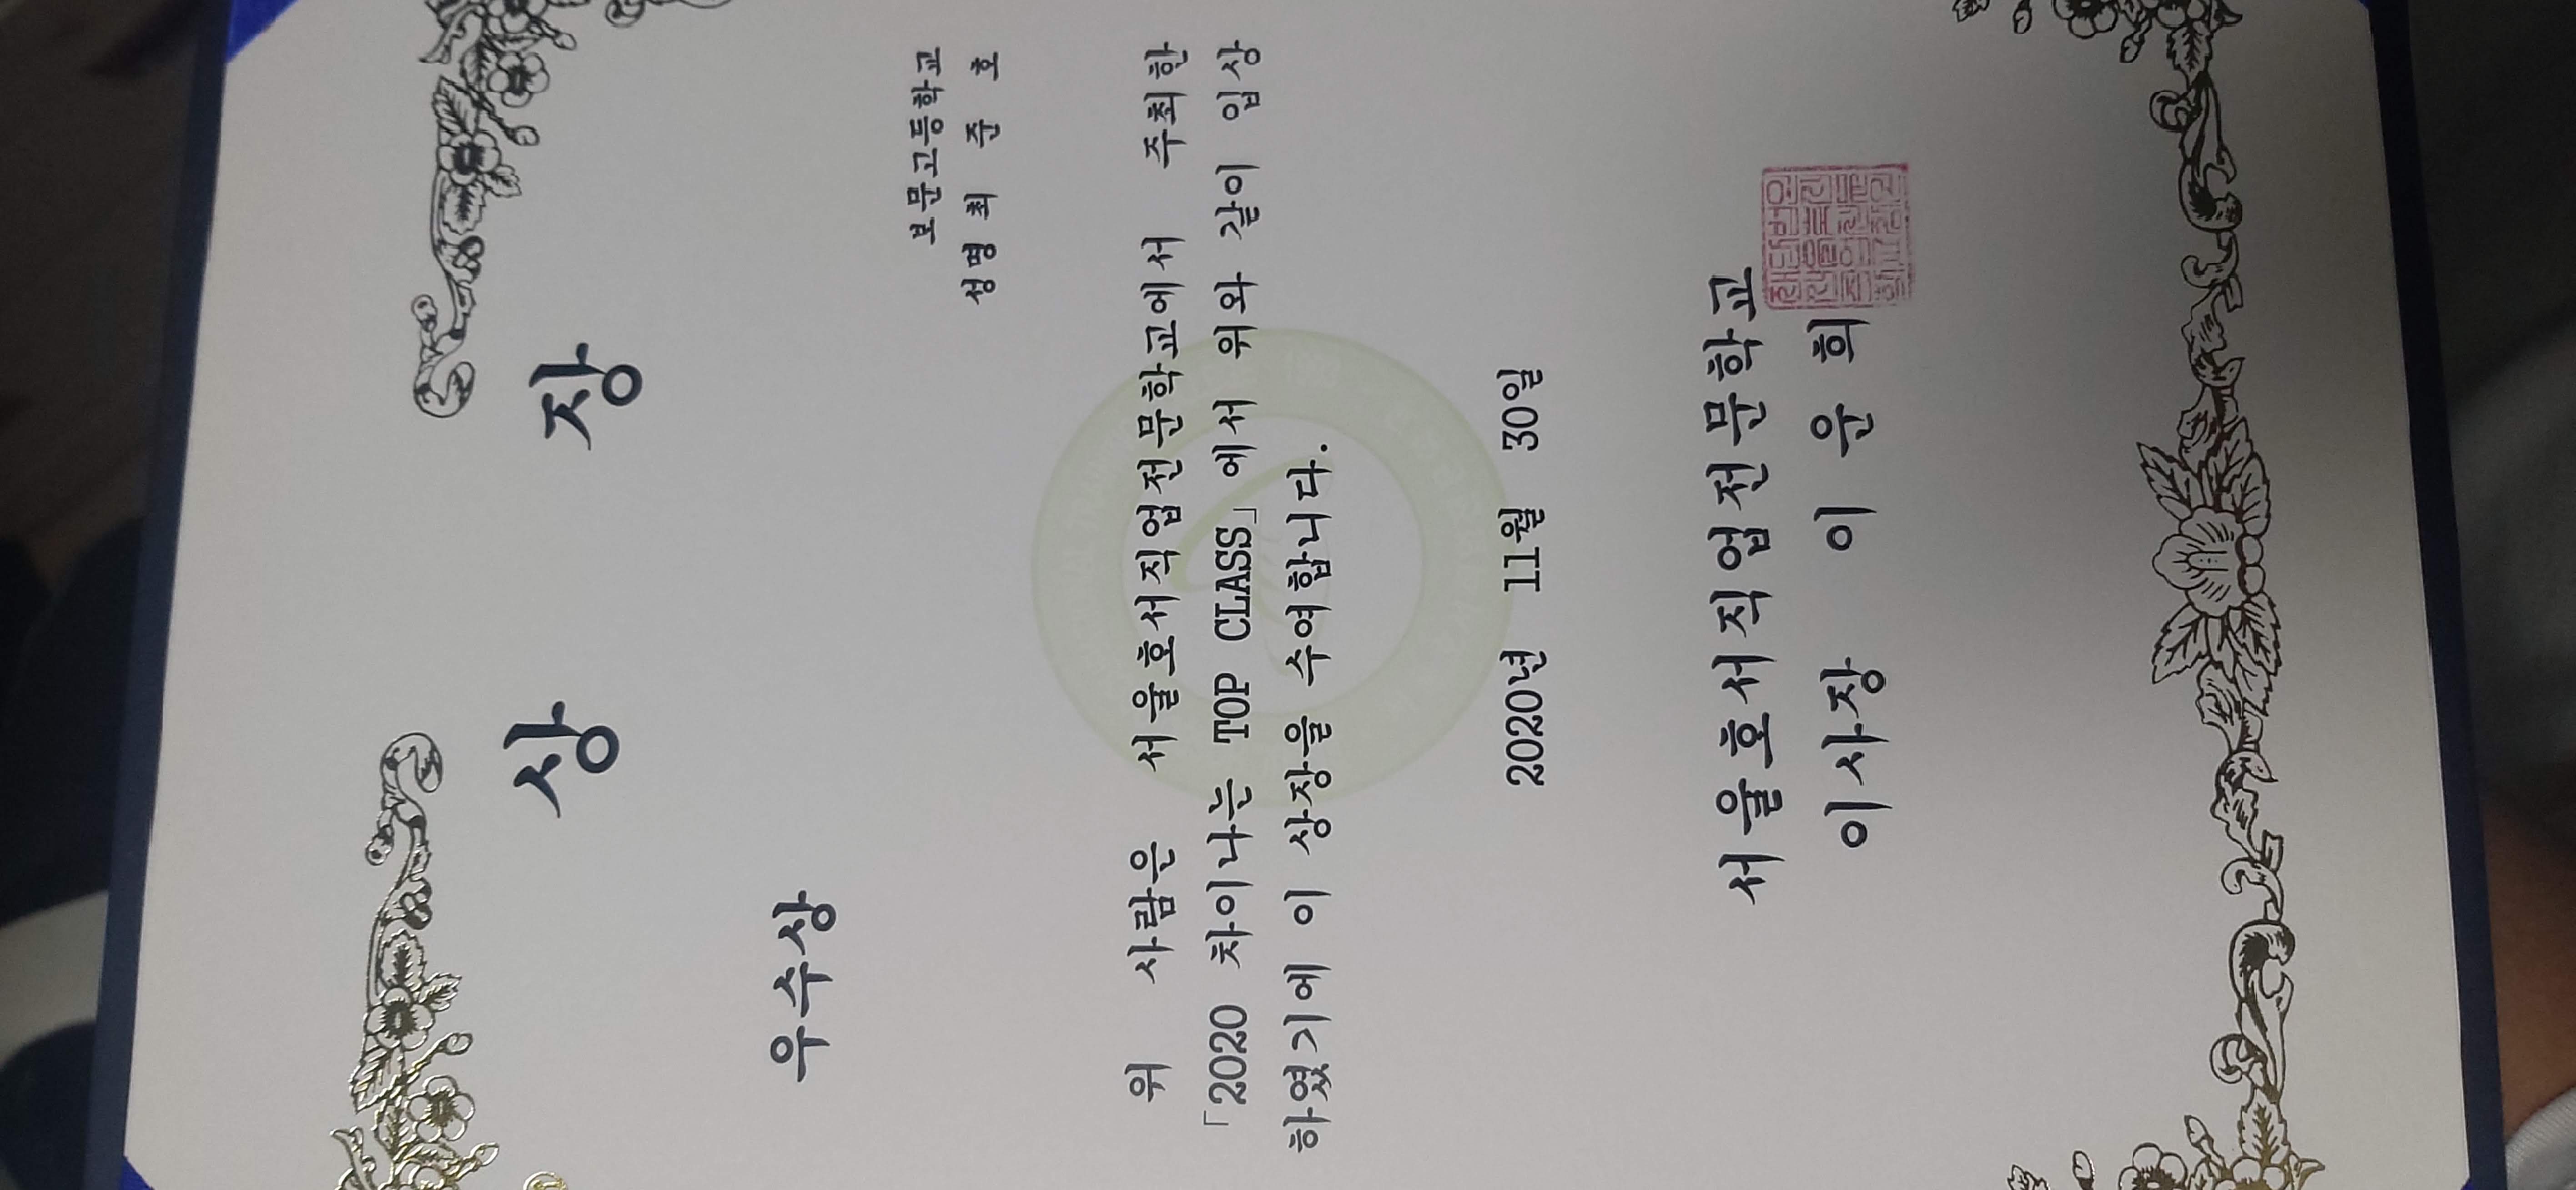 상 장
우수상
보문고등학교
성명 최 준 호
위 사람은 서울호서직업전문학교에서 주최한
「2020 차이나는 TOP CLASS」에서 위와 같이 입상
하였기에 이 상장을 수여합니다.
2020년 11월 30일
서울호서직업전문학교
이사장 이 운 희